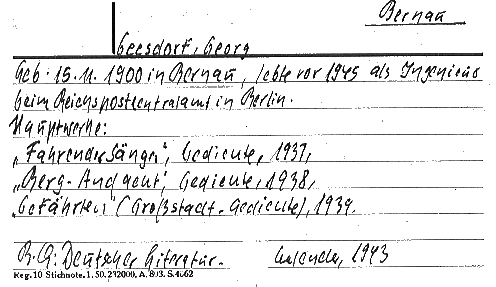 Bernau
Geesdorf, Georg
Geb. 15.11.1900 in Bernau, lebte vor 1945 als Ingenieur
beim Reichspostzentralamt in Berlin.
Hauptwerke:
„Fahrender Sänger", Gedichte, 1937,
„Berg-Andacht", Gedichte, 1938,
„Gefährten" (Großstadt-Gedichte), 1939.
Deutscher Literatur- Kalender, 1943
Reg. 10 Stichnote. 1. 50. 232000. A. 893. S. 4662